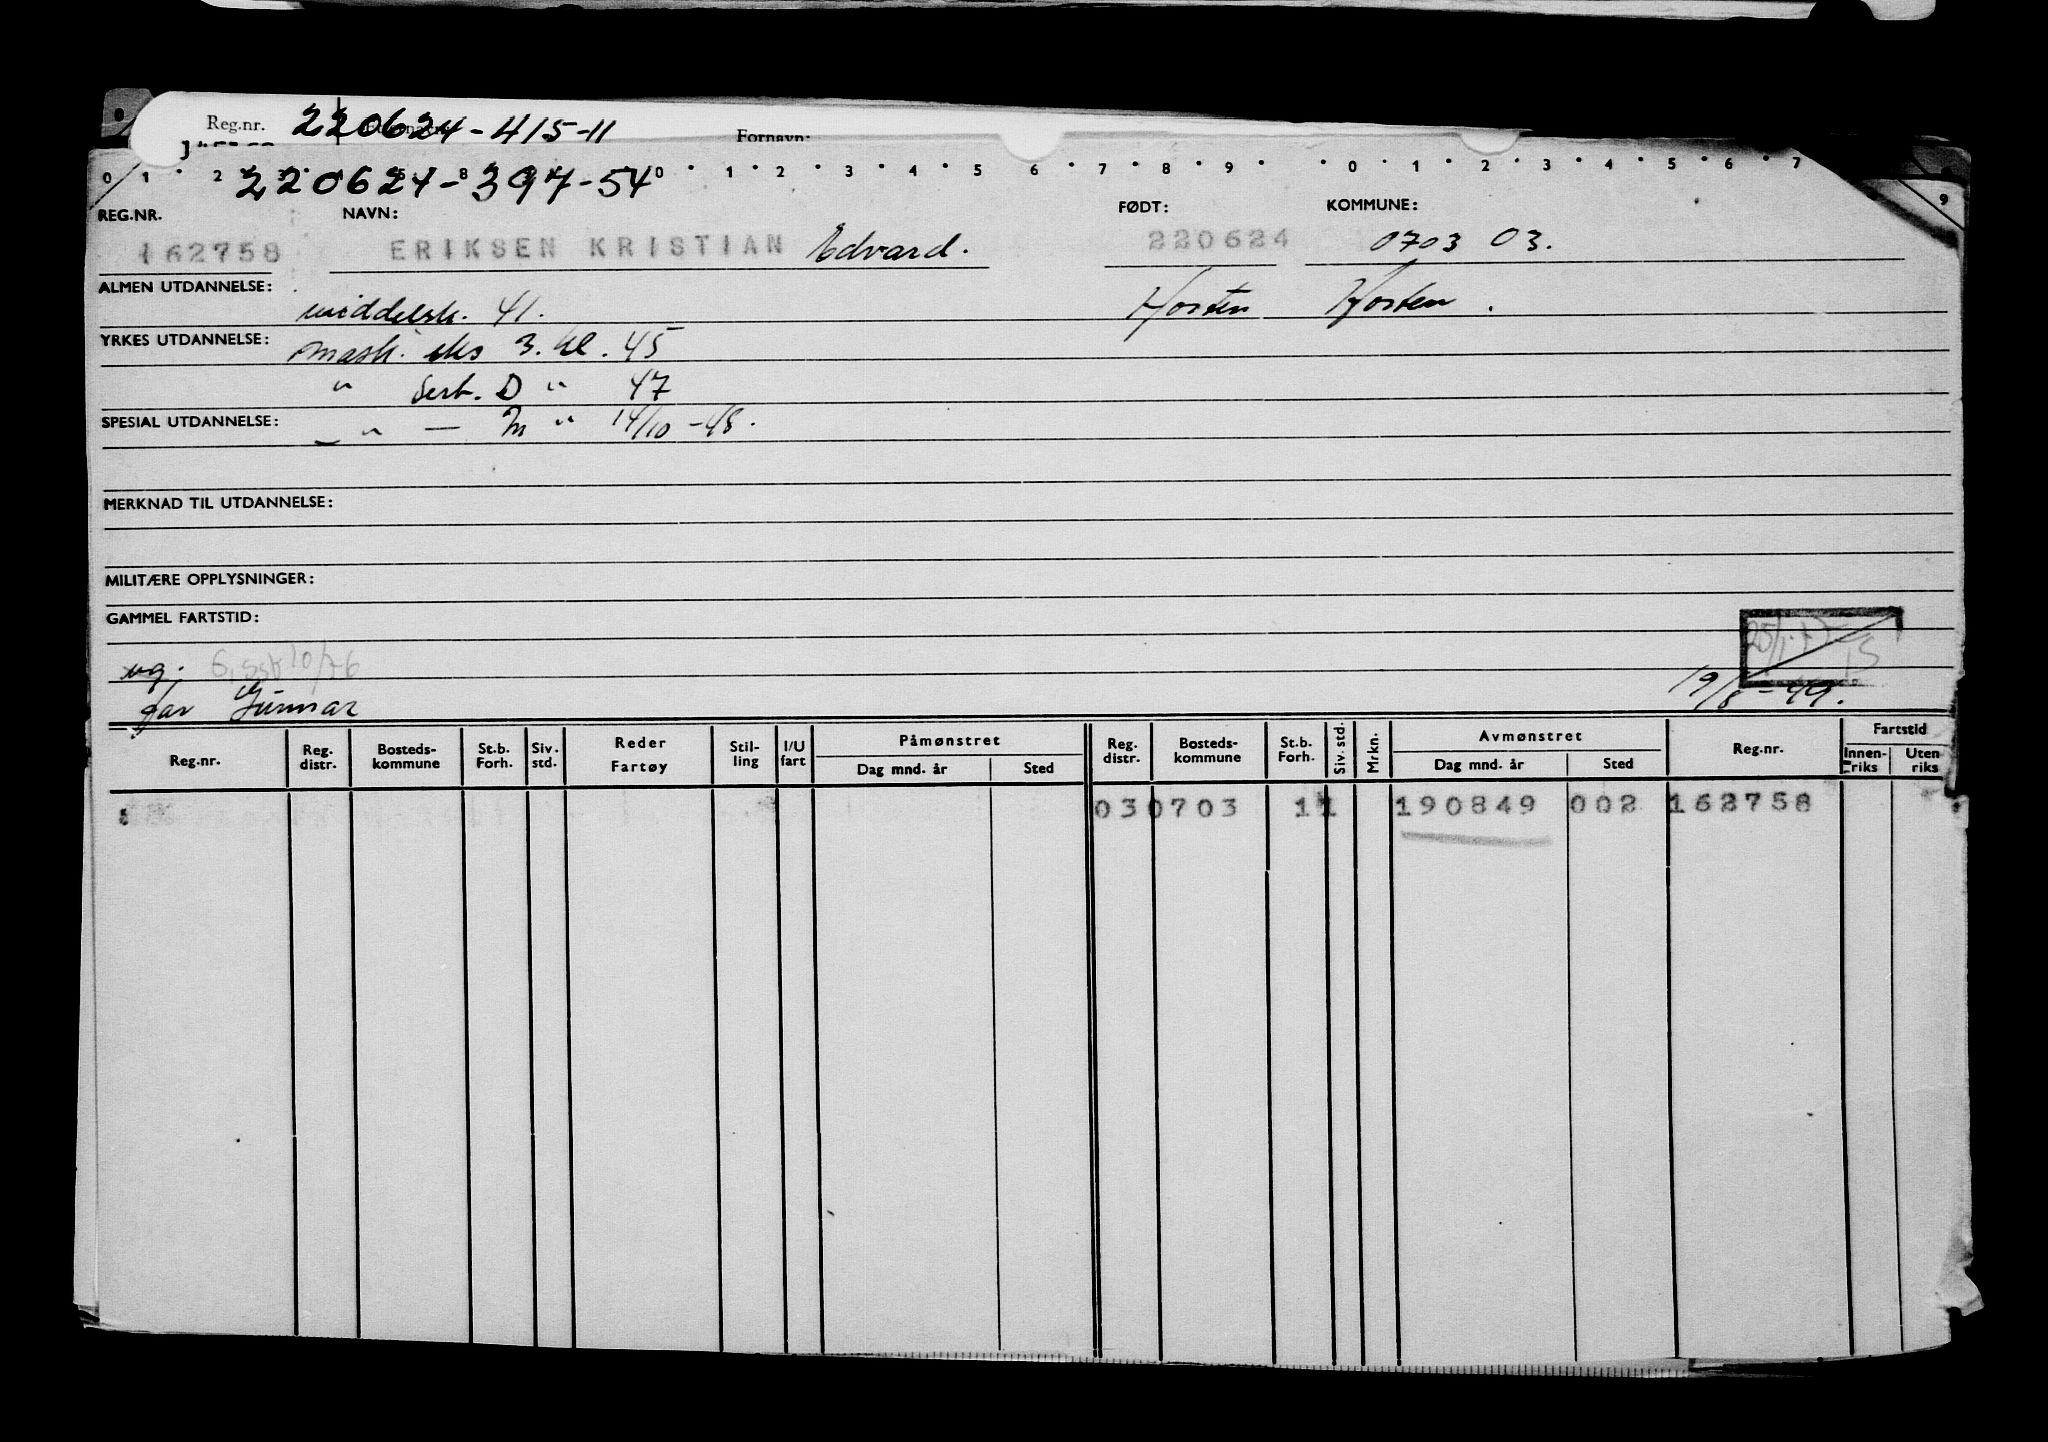 Reg.nr. 220624-415-11 Fornavn:
0 1 2 220624-397-54 0 1 2 3 4 5 6 7 8 9 0 1 2 3 4 5 6 7 9
REG.NR. NAVN: FØDT: KOMMUNE:
162758 ERIKSEN KRISTIAN Edvard. 220624 0703 03.
ALMEN UTDANNELSE: middelsk. 41. Horten Horten.
YRKES UTDANNELSE: mask. eks 3. kl. 45
" Sert. D " 47
SPESIAL UTDANNELSE: " — M " 14/10-48.
MERKNAD TIL UTDANNELSE:
MILITÆRE OPPLYSNINGER:
GAMMEL FARTSTID:
ug.
far Gunnar 19/8-49.
Reg.nr. Reg. distr. Bosteds-kommune St.b. Forh. Siv. std. Reder Fartøy Stil-ling I/U fart Påmønstret Dag mnd. år Sted Reg. distr. Bosteds-kommune St.b. Forh. Siv. std. Mrkn. Avmønstret Dag mnd. år Sted Reg.nr. Fartstid Innen-riks Uten riks
030703 11 190849 002 162758